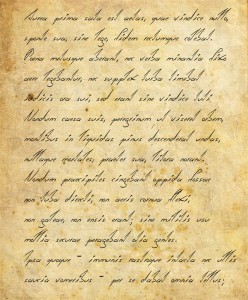 Aurea prima sata est aetas, quae vindice nullo,
sponte sua, sine lege, fidem rectumque colebat.
Poena metusque aberant, nec verba minantia fixo
aere legebantur, nec supplex turba timebat
iudicis ora sui, sed erant sine vindice tuti.
Nondum caesa suis, peregrinum ut viseret orbem,
montibus in liquidas pinus descenderat undas,
nullaque mortales praeter sua litora norant.
Nondum praecipites cingebant oppida fossae
non tuba directi, non aeris cornua flexi,
non galeae, non ensis erant: sine militis usu
mollia securae peragebant otia gentes.
Ipsa quoque - immunis rastroque intacta nec ullis
saucia vomeribus - per se dabat omnia tellus;